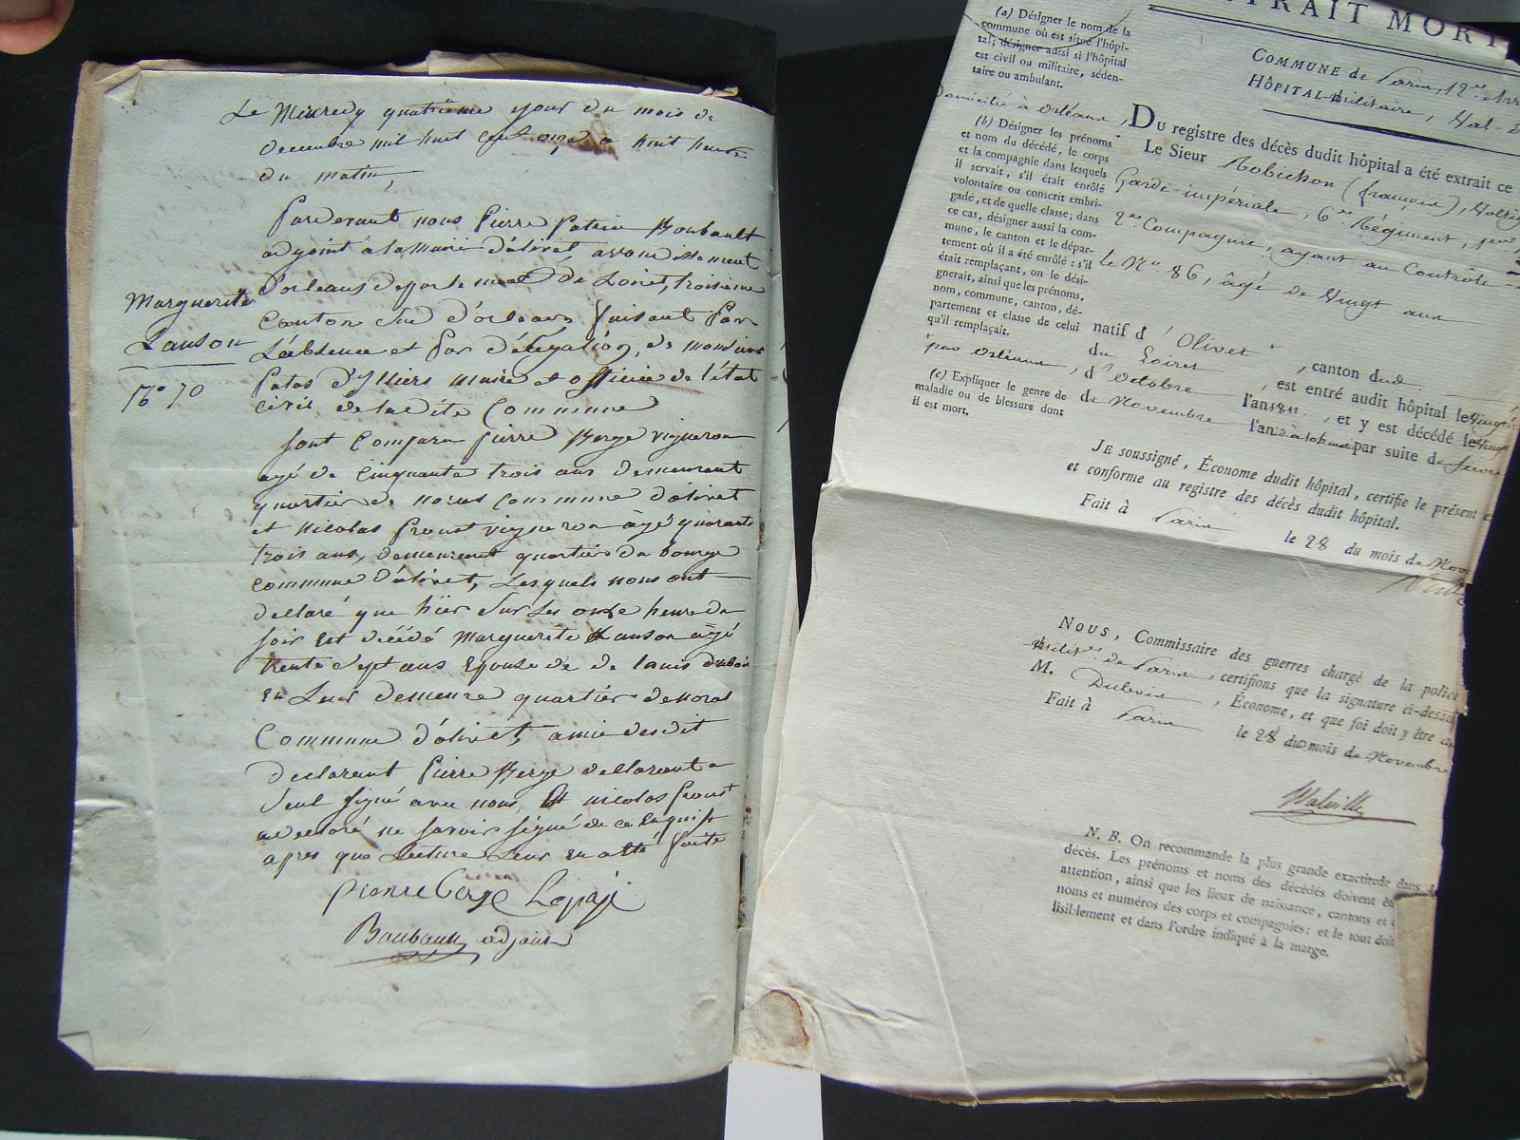 Le Mercredy quatrieme jour du mois de
decembre mil huit cent onze a huit heure
du matin,
Pardevant nous Pierre Patrin Boubault
adjoint a la mairie d'olivet, arrondissement
d'orleans departement du Loiret, troisieme
Canton Sud d'orleans faisant Par
L'absence et Par délégation de monsieur
maire et officier de l'état
civil de ladite Commune
Marguerite
Lanson
N° 70
sont comparu pierre Berge vigneron
agé de cinquante trois ans demeurant
quartier de Commune d'olivet
et nicolas Proust vigneron âgé quarante
trois ans, demeurant quartier du bourge
commune d'olivet, Lesquels nous ont
declaré que hïer sur Les onze heure du
soir est décédé Marguerite Lanson agé
trente sept ans Epouse de de Louis dubois
en Leur demeure quartier
Commune d'olivet, amie desdit
declarant Pierre Berge declarant a
seul signé avec nous, Et nicolas Proust
a declaré ne savoir signé de ce requist
apres que Lecture Leur en a été faite
pierre berge Lepage
Boubault adjoint
TRAIT MORT
(a) Désigner le nom de la
commune où est situé l'hôpi-
tal; désigner aussi si l'hôpital
est civil ou militaire, séden-
taire ou ambulant.
COMMUNE de Paris, 12me Arr
HÔPITAL militaire, Val-d
Domicilié à orléans
(b) Désigner les prénoms
et nom du décédé, le corps
et la compagnie dans lesquels
il servait, s'il était enrôlé
volontaire ou conscrit embri-
gadé, et de quelle classe; dans
ce cas, désigner aussi la com-
mune, le canton et le dépar-
tement où il a été enrôlé: s'il
était remplaçant, on le dési-
gnerait, ainsi que les prénoms,
nom, commune, canton, dé-
partement et classe de celui
qu'il remplaçait.
DU registre des décès dudit hôpital a été extrait ce
Le Sieur Robichon (françois), Voltig
Garde-impériale, 6me Régiment,
2me Compagnie, ayant au Contrôle
le No 86, âgé de Vingt ans
natif d'Olivet, canton dud
pres orléans, du Loiret, est entré audit hôpital le Vingt
d'Octobre l'an 1811, et y est décédé le Vingt
de Novembre l'an par suite de fievre
(c) Expliquer le genre de
maladie ou de blessure dont
il est mort.
JE soussigné, Économe dudit hôpital, certifie le présent
et conforme au registre des décès dudit hôpital.
Fait à Paris le 28 du mois de Nov
NOUS, Commissaire des guerres chargé de la police
de Paris, certifions que la signature ci-dessus
M. Dubois, Économe, et que foi doit y être
Fait à Paris le 28 du mois de Novembre
N. B. On recommande la plus grande exactitude dans
décès. Les prénoms et noms des décédés doivent
attention, ainsi que les lieux de naissance, cantons et
noms et numéros des corps et compagnies: et le tout doit
lisiblement et dans l'ordre indiqué à la marge.